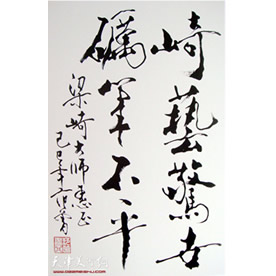 崎藝驚世
礪筆不平
梁崎大师惠正
己巳年